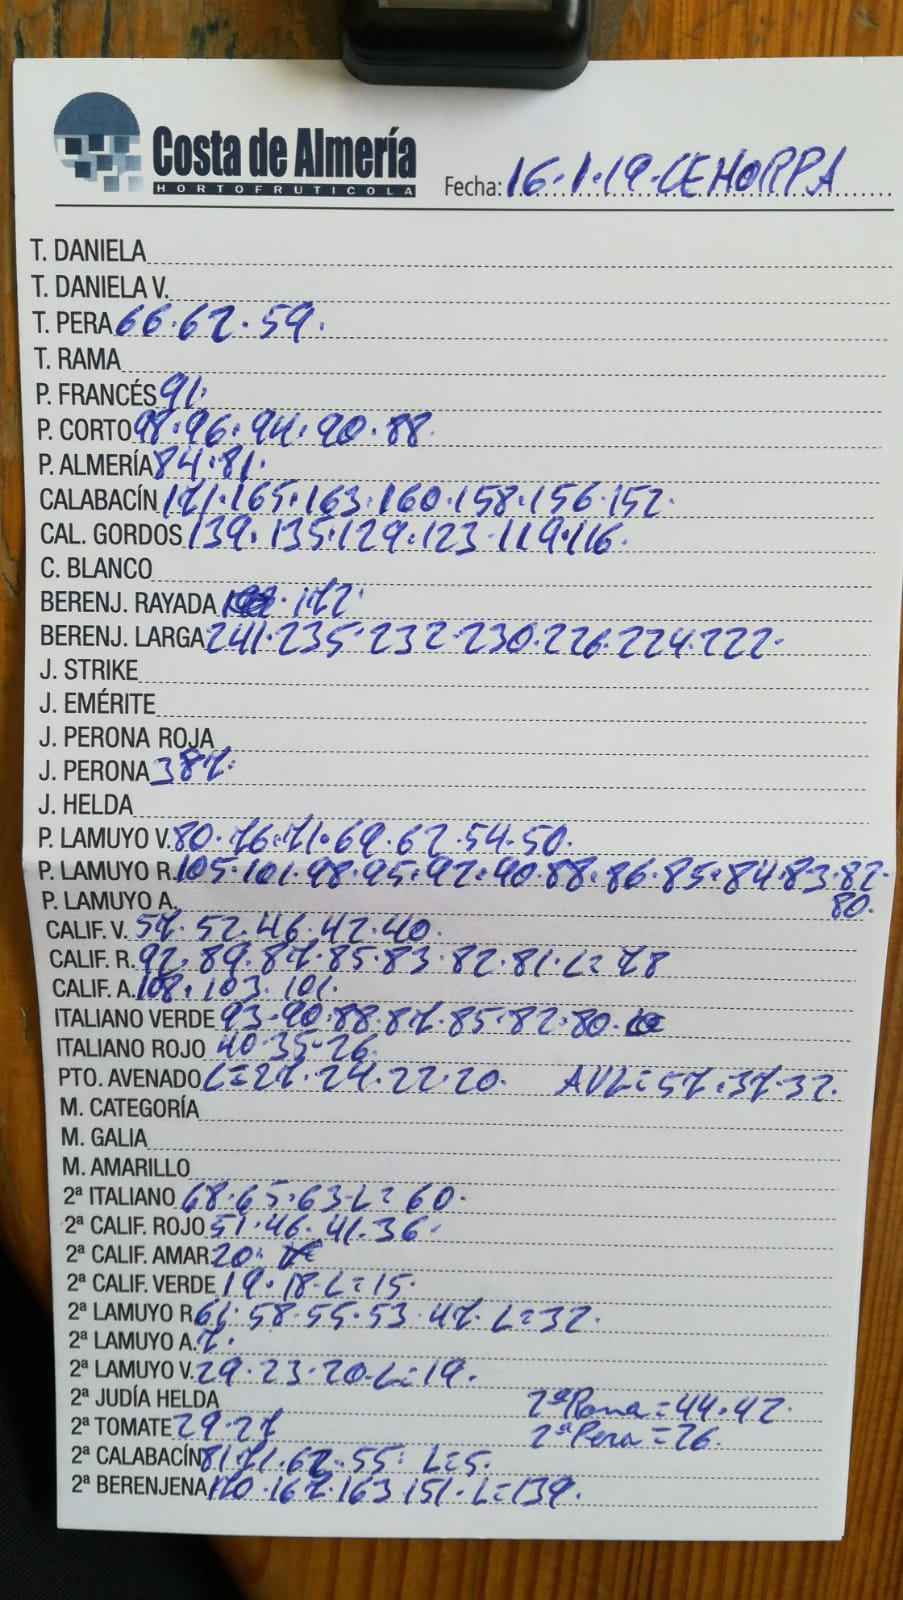 Costa de Almería
HORTOFRUTICOLA
Fecha: 16.1.19.CEHORPA
T. DANIELA
T. DANIELA V.
T. PERA 66.62.59.
T. RAMA
P. FRANCÉS 91.
P. CORTO 98.96.94.90.88.
P. ALMERÍA 84.81.
CALABACÍN 171.165.163.160.158.156.152.
CAL. GORDOS 139.135.129.123.119.116.
C. BLANCO
BERENJ. RAYADA 172.
BERENJ. LARGA 241.235.232.230.226.224.222.
J. STRIKE
J. EMÉRITE
J. PERONA ROJA
J. PERONA 387.
J. HELDA
P. LAMUYO V. 80.76.71.69.62.54.50.
P. LAMUYO R. 105.101.98.95.92.90.88.86.85.84.83.82.
80.
P. LAMUYO A.
CALIF. V. 57.52.46.42.40.
CALIF. R. 92.89.87.85.83.82.81.L=78
CALIF. A. 108.103.101.
ITALIANO VERDE 93.90.88.87.85.82.80.
ITALIANO ROJO 40.35.26.
PTO. AVENADO L=27.24.22.20. AVL=57.37.32.
M. CATEGORÍA
M. GALIA
M. AMARILLO
2ª ITALIANO 68.65.63.L=60.
2ª CALIF. ROJO 51.46.41.36.
2ª CALIF. AMAR 20.
2ª CALIF. VERDE 19.18.L=15.
2ª LAMUYO R. 61.58.55.53.47.L=32.
2ª LAMUYO A. 7.
2ª LAMUYO V. 29.23.20.L=19.
2ª JUDÍA HELDA 2ª Rama=44.42.
2ª TOMATE 29.27 2ª Pera=26.
2ª CALABACÍN 81.71.62.55. L=5.
2ª BERENJENA 170.167.163.151.L=139.